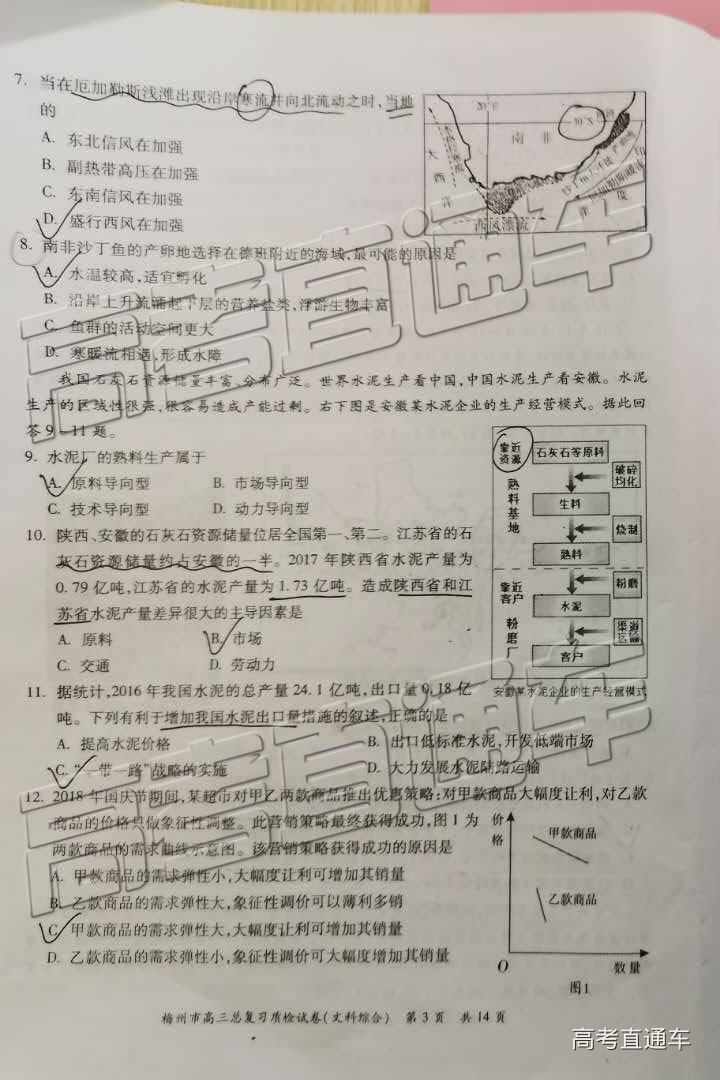 7. 当在厄加勒斯浅滩出现沿岸寒流并向北流动之时,当地
的
A. 东北信风在加强
B. 副热带高压在加强
C. 东南信风在加强
D. 盛行西风在加强
20°E
30°S
南非
大西洋
印度
西风漂流
8. 南非沙丁鱼的产卵地选择在德班附近的海域,最可能的原因是
A. 水温较高,适宜孵化
B. 沿岸上升流涌起下层的营养盐类,浮游生物丰富
C. 鱼群的活动空间更大
D. 寒暖流相遇,形成水障
我国石灰石资源储量丰富、分布广泛。世界水泥生产看中国,中国水泥生产看安徽。水泥
生产的区域性很强,很容易造成产能过剩。右下图是安徽某水泥企业的生产经营模式。据此回
答 9－11 题。
9. 水泥厂的熟料生产属于
A. 原料导向型 B. 市场导向型
C. 技术导向型 D. 动力导向型
10. 陕西、安徽的石灰石资源储量位居全国第一、第二。江苏省的石
灰石资源储量约占安徽的一半。2017 年陕西省水泥产量为
0.79 亿吨,江苏省的水泥产量为 1.73 亿吨。造成陕西省和江
苏省水泥产量差异很大的主导因素是
A. 原料 B. 市场
C. 交通 D. 劳动力
靠近资源
石灰石等原料
破碎均化
熟料基地
生料
烧制
熟料
靠近客户
粉磨
水泥
粉磨厂
渠道运输
客户
安徽某水泥企业的生产经营模式
11. 据统计,2016 年我国水泥的总产量 24.1 亿吨,出口量 0.18 亿
吨。下列有利于增加我国水泥出口量措施的叙述,正确的是
A. 提高水泥价格 B. 出口低标准水泥,开发低端市场
C. “一带一路”战略的实施 D. 大力发展水泥陆路运输
12. 2018 年国庆节期间,某超市对甲乙两款商品推出优惠策略:对甲款商品大幅度让利,对乙款
商品的价格只做象征性调整。此营销策略最终获得成功,图 1 为
两款商品的需求曲线示意图。该营销策略获得成功的原因是
A. 甲款商品的需求弹性小,大幅度让利可增加其销量
B. 乙款商品的需求弹性大,象征性调价可以薄利多销
C. 甲款商品的需求弹性大,大幅度让利可增加其销量
D. 乙款商品的需求弹性小,象征性调价可大幅度增加其销量
价格
甲款商品
乙款商品
O
数量
图1
梅州市高三总复习质检试卷(文科综合) 第 3 页 共 14 页
高考直通车
高考直通车
高考直通车